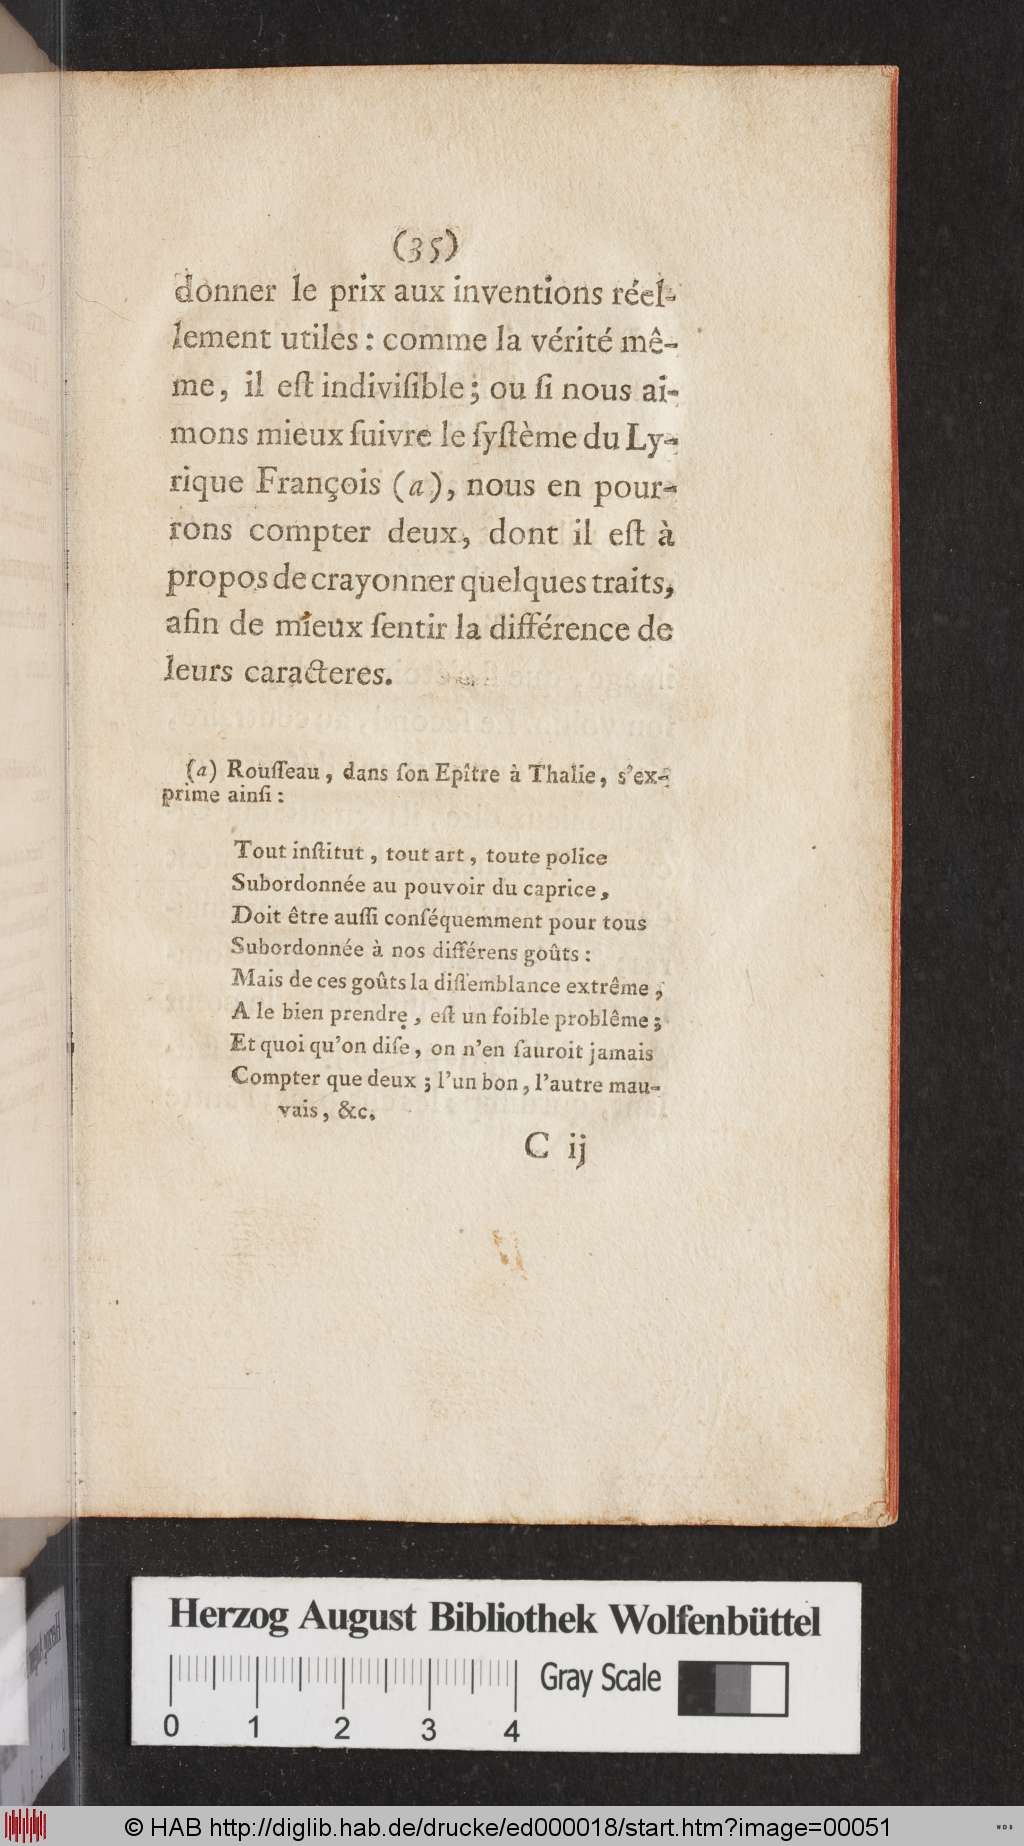 (35)
donner le prix aux inventions réel-
lement utiles : comme la vérité mê-
me, il eſt indiviſible ; ou ſi nous ai-
mons mieux ſuivre le ſyſtème du Ly-
rique François (a), nous en pour-
rons compter deux, dont il eſt à
propos de crayonner quelques traits,
afin de mieux ſentir la différence de
leurs caracteres.
(a) Rouſſeau, dans ſon Epître à Thalie, s'ex-
prime ainſi :
Tout inſtitut, tout art, toute police
Subordonnée au pouvoir du caprice,
Doit être auſſi conſéquemment pour tous
Subordonnée à nos différens goûts :
Mais de ces goûts la diſſemblance extrême,
A le bien prendre, eſt un foible problême ;
Et quoi qu'on diſe, on n'en ſauroit jamais
Compter que deux ; l'un bon, l'autre mau-
vais, &c.
C ij
Herzog August Bibliothek Wolfenbüttel
Gray Scale
0 1 2 3 4
© HAB http://diglib.hab.de/drucke/ed000018/start.htm?image=00051